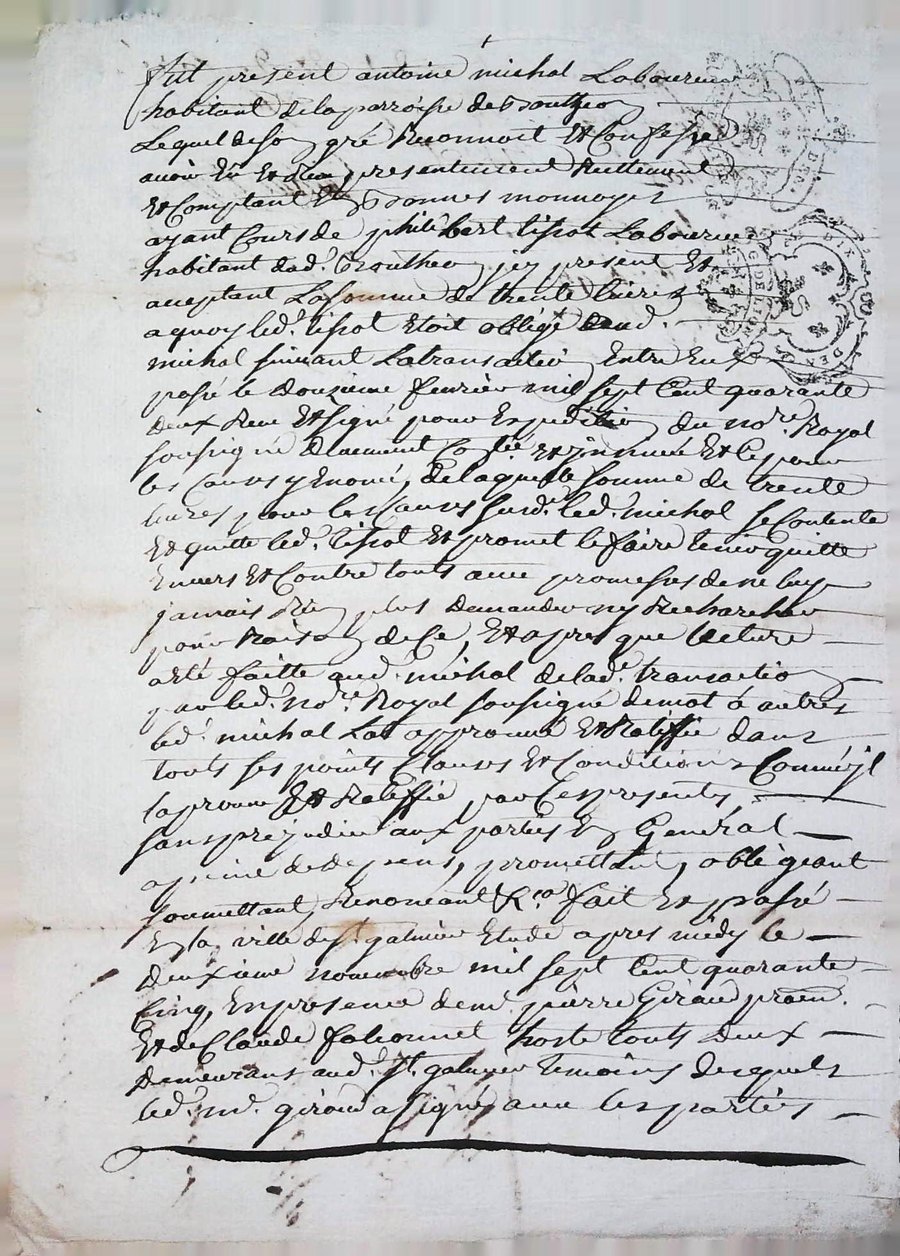 fut present antoine michal Laboureur
habitant de la parroisse de Boutheo
Lequel de son gré Reconnoit Et Confesse
avoir Eu Et Receu presentement Reellement
Et Comptant En Bonnes monnoyes
ayant Cours de philibert tissot Laboureur
habitant dad.t Boutheo jcy present Et
acceptant La somme de trente livres
a quoy led.t tissot Etoit obligé aud.
michal suivant La transaction Entre Eux
passé le douzieme fevrier mil sept Cent quarante
deux Receue Et signé pour Expedition du no.re Royal
soussigné deuement Et ce pour
les Causes y Enoncé, de laquelle somme de trente
livres pour les Causes susd.t led.t michal se Contente
Et quitte led.t tissot Et promet le faire tenir quitte
Envers Et Contre touts avec promesses de ne luy
jamais Rien plus demander ny Rechercher
pour Raison de Ce, Et apres que lecture
a Eté faitte aud.t michal de lad.e transaction
par led.t no.re Royal soussigné de mot à autres
led.t michal La approuvé Et Ratiffié dans
touts ses points Clauses Et Conditions Comme jl
lapprouve Et Ratiffie par Ces presentes,
sans prejudice aux parties En General
a peine de depens, promettant, obligeant
soumettant, Renonceant &.a fait Et passé
En la ville de st. galmier Etude apres midy le
deuxieme novembre mil sept Cent quarante
Cinq, En presence de m.e pierre Giraud
Et de Claude hoste touts deux
demeurants aud.t st. galmier temoins desquels
led.t m.e giraud a signé avec les parties
GDE LION
DIX DEN